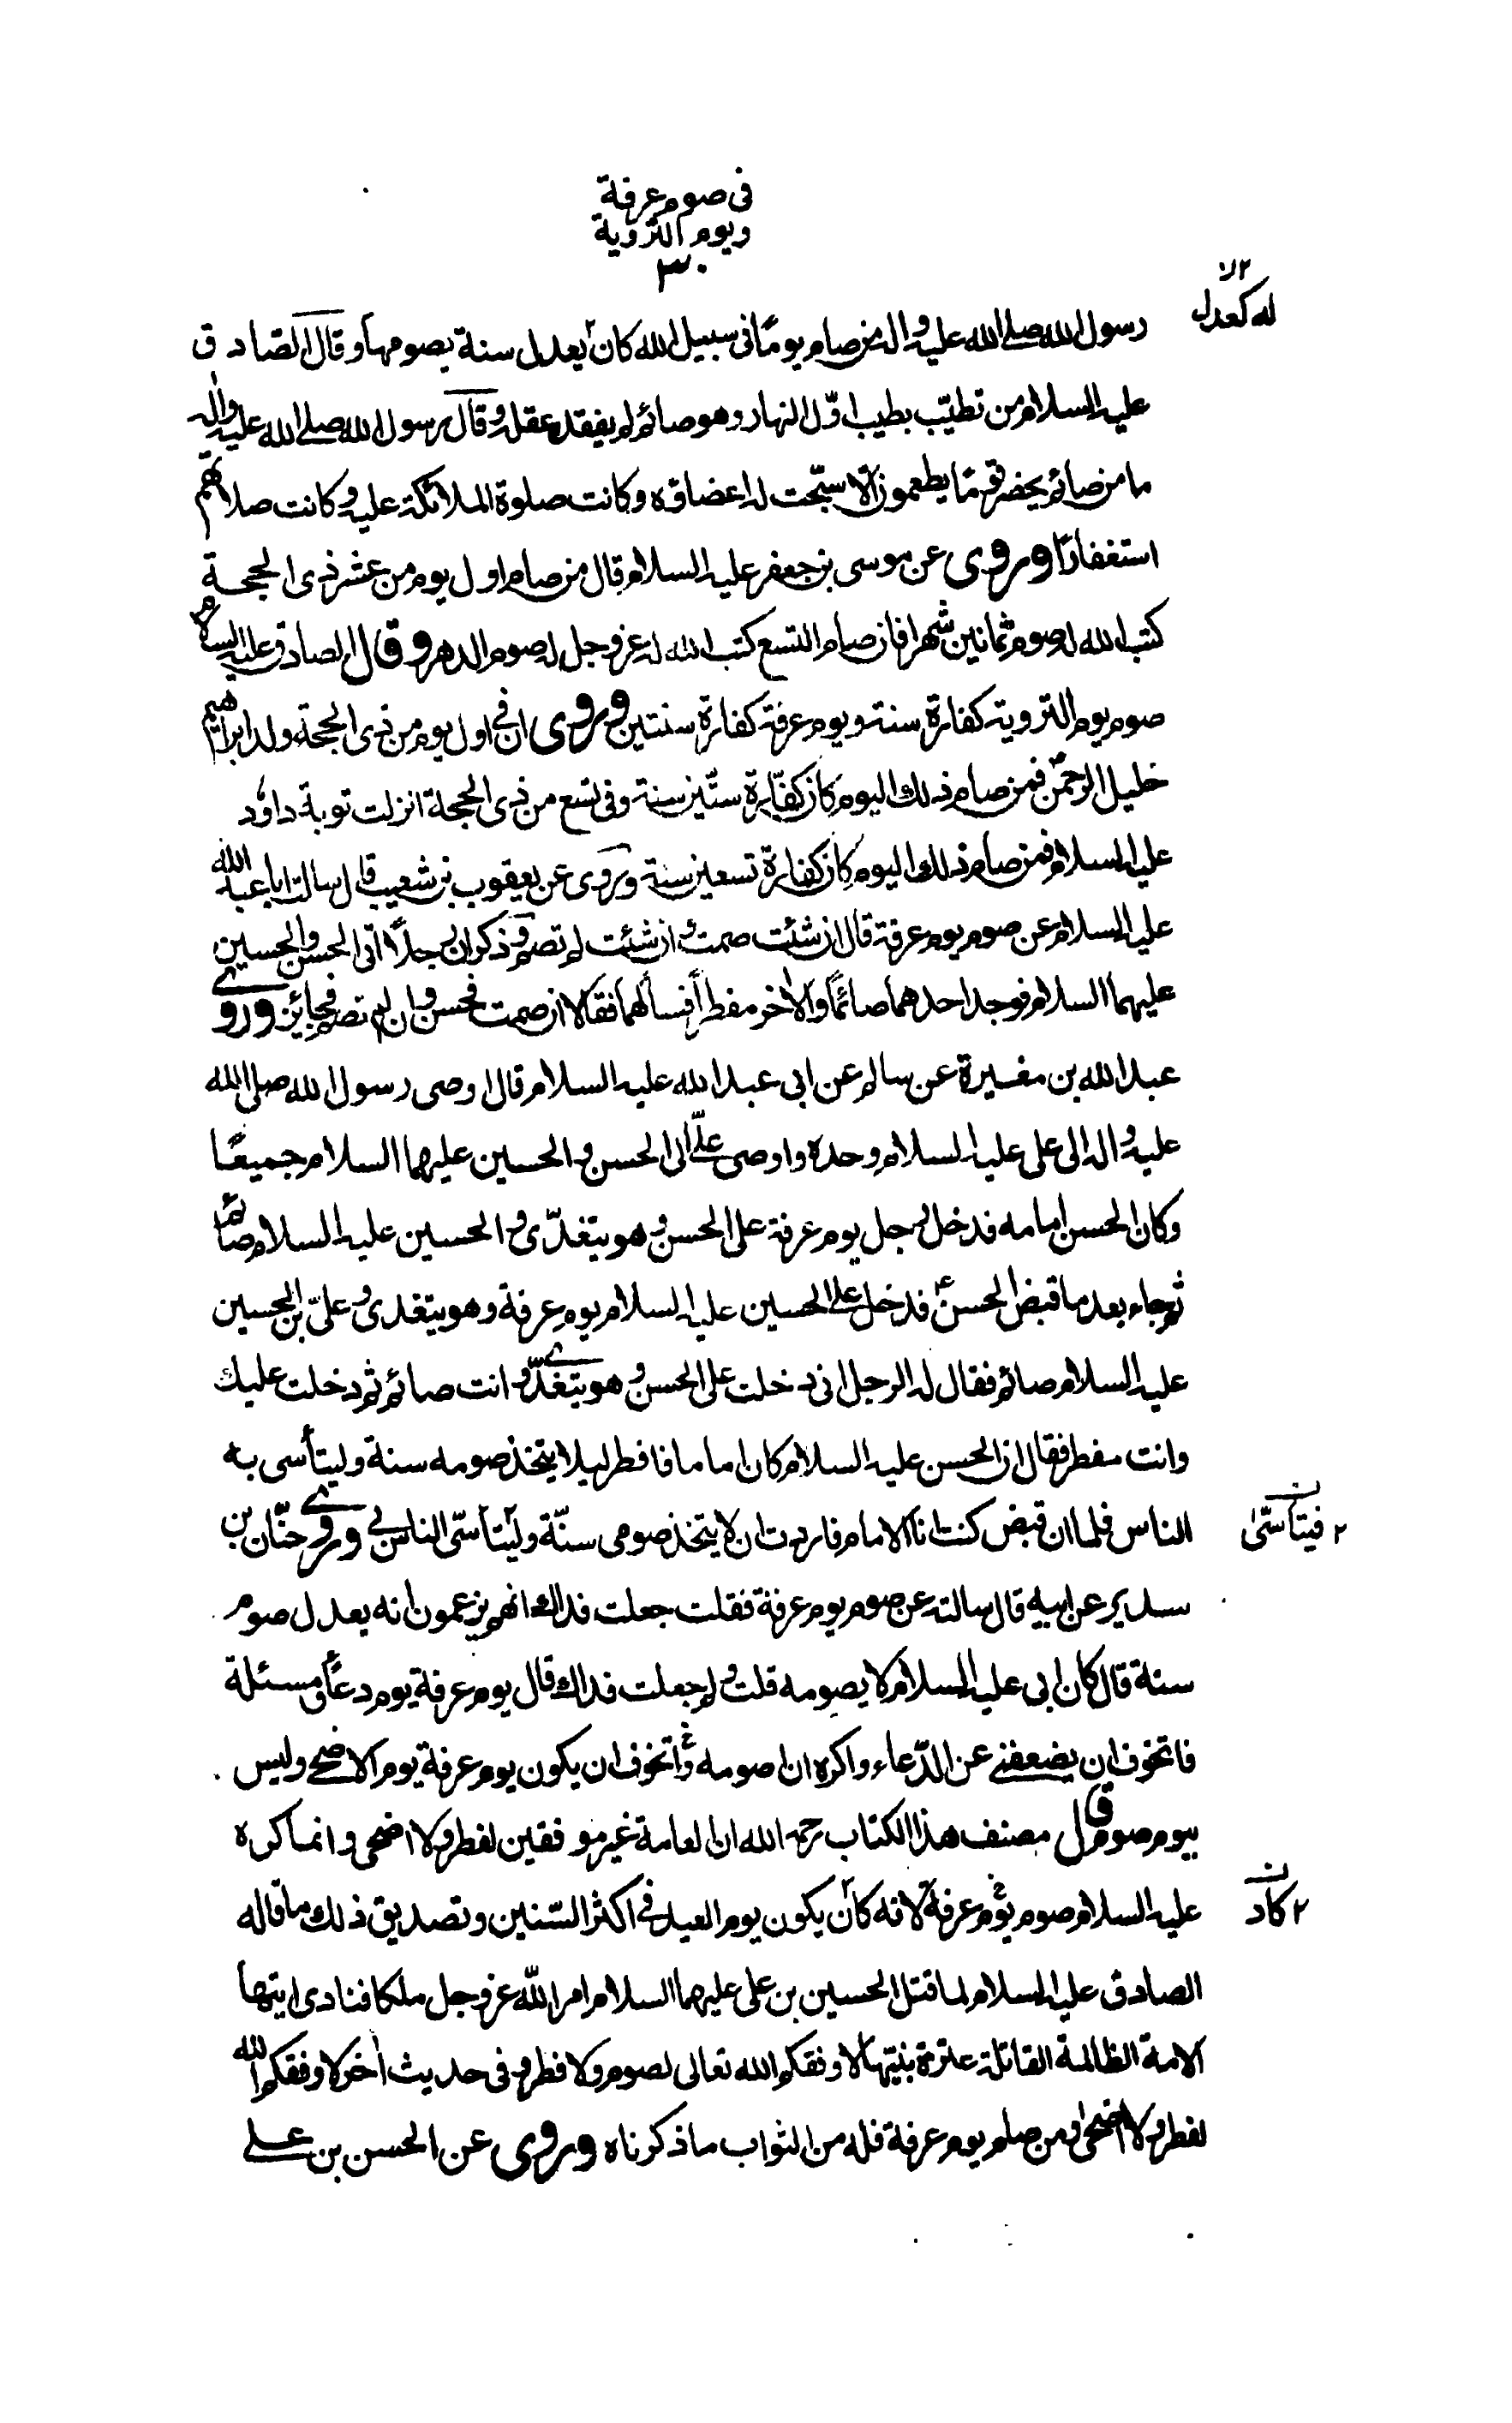 في صوم عرفة
ويوم التروية
٣٠
له كعدل
رسول الله صلى الله عليه واله من صام يومًا في سبيل الله كان يعدل سنة يصومها وقال الصادق
عليه السلام من تطيّب بطيب اوّل النهار وهو صائم لم يفقد عقله وقال رسول الله صلى الله عليه واله
ما من صائم يحضر قومًا يطعمون الّا سبّحت له اعضاؤه وكانت صلوة الملائكة عليه وكانت صلاتهم
استغفارًا وروى عن موسى بن جعفر عليه السلام قال من صام اول يوم من عشر ذى الحجة
كتب الله له صوم ثمانين شهرا فان صام التسع كتب الله له عز وجل له صوم الدهر وقال الصادق عليه السلام
صوم يوم التروية كفارة سنة ويوم عرفة كفارة سنتين وروى ان في اول يوم من ذى الحجة ولد ابراهيم
خليل الرحمن فمن صام ذلك اليوم كان كفّارة ستّين سنة وفى تسع من ذى الحجة انزلت توبة داود
عليه السلام فمن صام ذلك اليوم كان كفارة تسعين سنة وروى عن يعقوب بن شعيب قال سالت ابا عبد الله
عليه السلام عن صوم يوم عرفة قال ان شئت صمت وان شئت لم تصم وذكر ان رجلًا اتى الحسن والحسين
عليهما السلام فوجد احدهما صائمًا والاخر مفطرًا فسألهما فقالا ان صمت فحسن وان لم تصم فجائز وروى
عبد الله بن مغيرة عن سالم عن ابى عبد الله عليه السلام قال اوصى رسول الله صلى الله
عليه واله الى على عليه السلام وحده واوصى علىّ الى الحسن والحسين عليهما السلام جميعًا
وكان الحسن امامه فدخل رجل يوم عرفة على الحسن وهو يتغدّى والحسين عليه السلام صائم
ثم جاء بعد ما قبض الحسنؑ فدخل على الحسين عليه السلام يوم عرفة وهو يتغدى وعلىّ بن الحسين
عليه السلام صائم فقال له الرجل انى دخلت على الحسن وهو يتغدّى وانت صائم ثم دخلت عليك
وانت مفطر فقال ان الحسن عليه السلام كان اماما فافطر ليلا يتخذ صومه سنة وليتأسى به
الناس فلما ان قبض كنت انا الامام فاردت ان لا يتخذ صومى سنّة وليتأسّى الناس بى وروى حنّان بن
٢ فيتأسّى
سدير عن ابيه قال سالته عن صوم يوم عرفة فقلت جعلت فداك انهم يزعمون انه يعدل صوم
سنة قال كان ابى عليه السلام لا يصومه قلت ولم جعلت فداك قال يوم عرفة يوم دعاء ومسئلة
فاتخوف ان يضعفنى عن الدّعاء واكره ان اصومه واتخوف ان يكون يوم عرفة يوم الاضحى وليس
بيوم صوم قال مصنف هذا الكتاب رحمه الله ان العامة غير موفقين لفطر ولا اضحى وانما كره
عليه السلام صوم يوم عرفة لانه كان يكون يوم العيد في اكثر السّنين وتصديق ذلك ما قاله
٢ كاد
الصادق عليه السلام لما قتل الحسين بن على عليهما السلام امر الله عز وجل ملكا فنادى ايتها
الامة الظالمة القاتلة عترة نبيّها لا وفقكم الله تعالى لصوم ولا فطر وفى حديث آخر لا وفقكم الله
لفطر ولا اضحى ومن صام يوم عرفة فله من الثواب ما ذكرناه وروى عن الحسن بن على